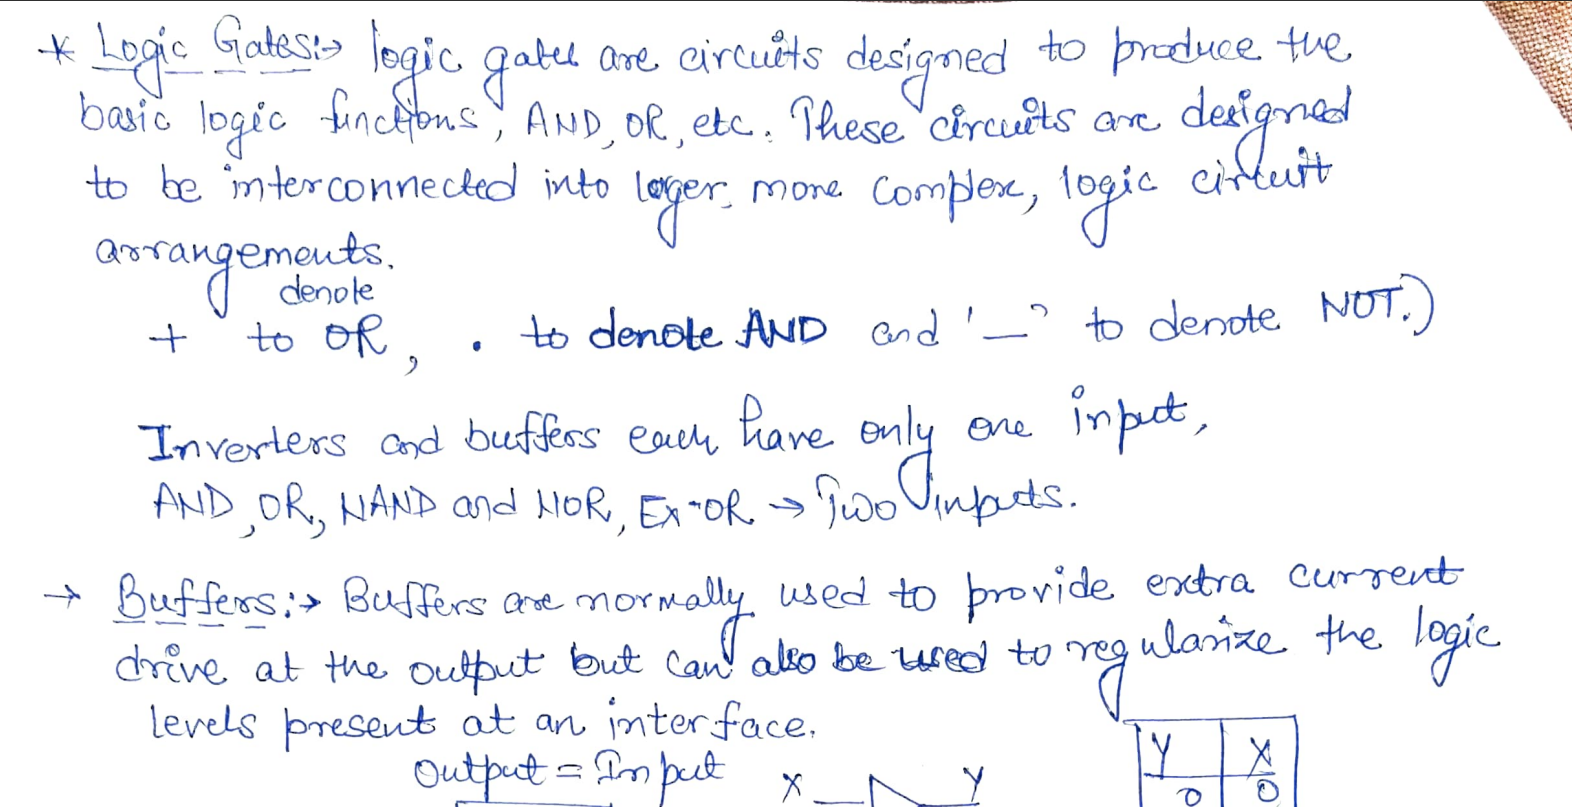 * Logic Gates:→ logic gates are circuits designed to produce the
basic logic functions, AND, OR, etc. These circuits are designed
to be interconnected into larger, more complex, logic circuit
arrangements.
denote
+ to OR, . to denote AND and '—' to denote NOT.)
Inverters and buffers each have only one input,
AND, OR, NAND and NOR, Ex-OR → Two inputs.
→ Buffers:→ Buffers are normally used to provide extra current
drive at the output but can also be used to regularize the logic
levels present at an interface.
Output = Input X Y
Y X
0 0